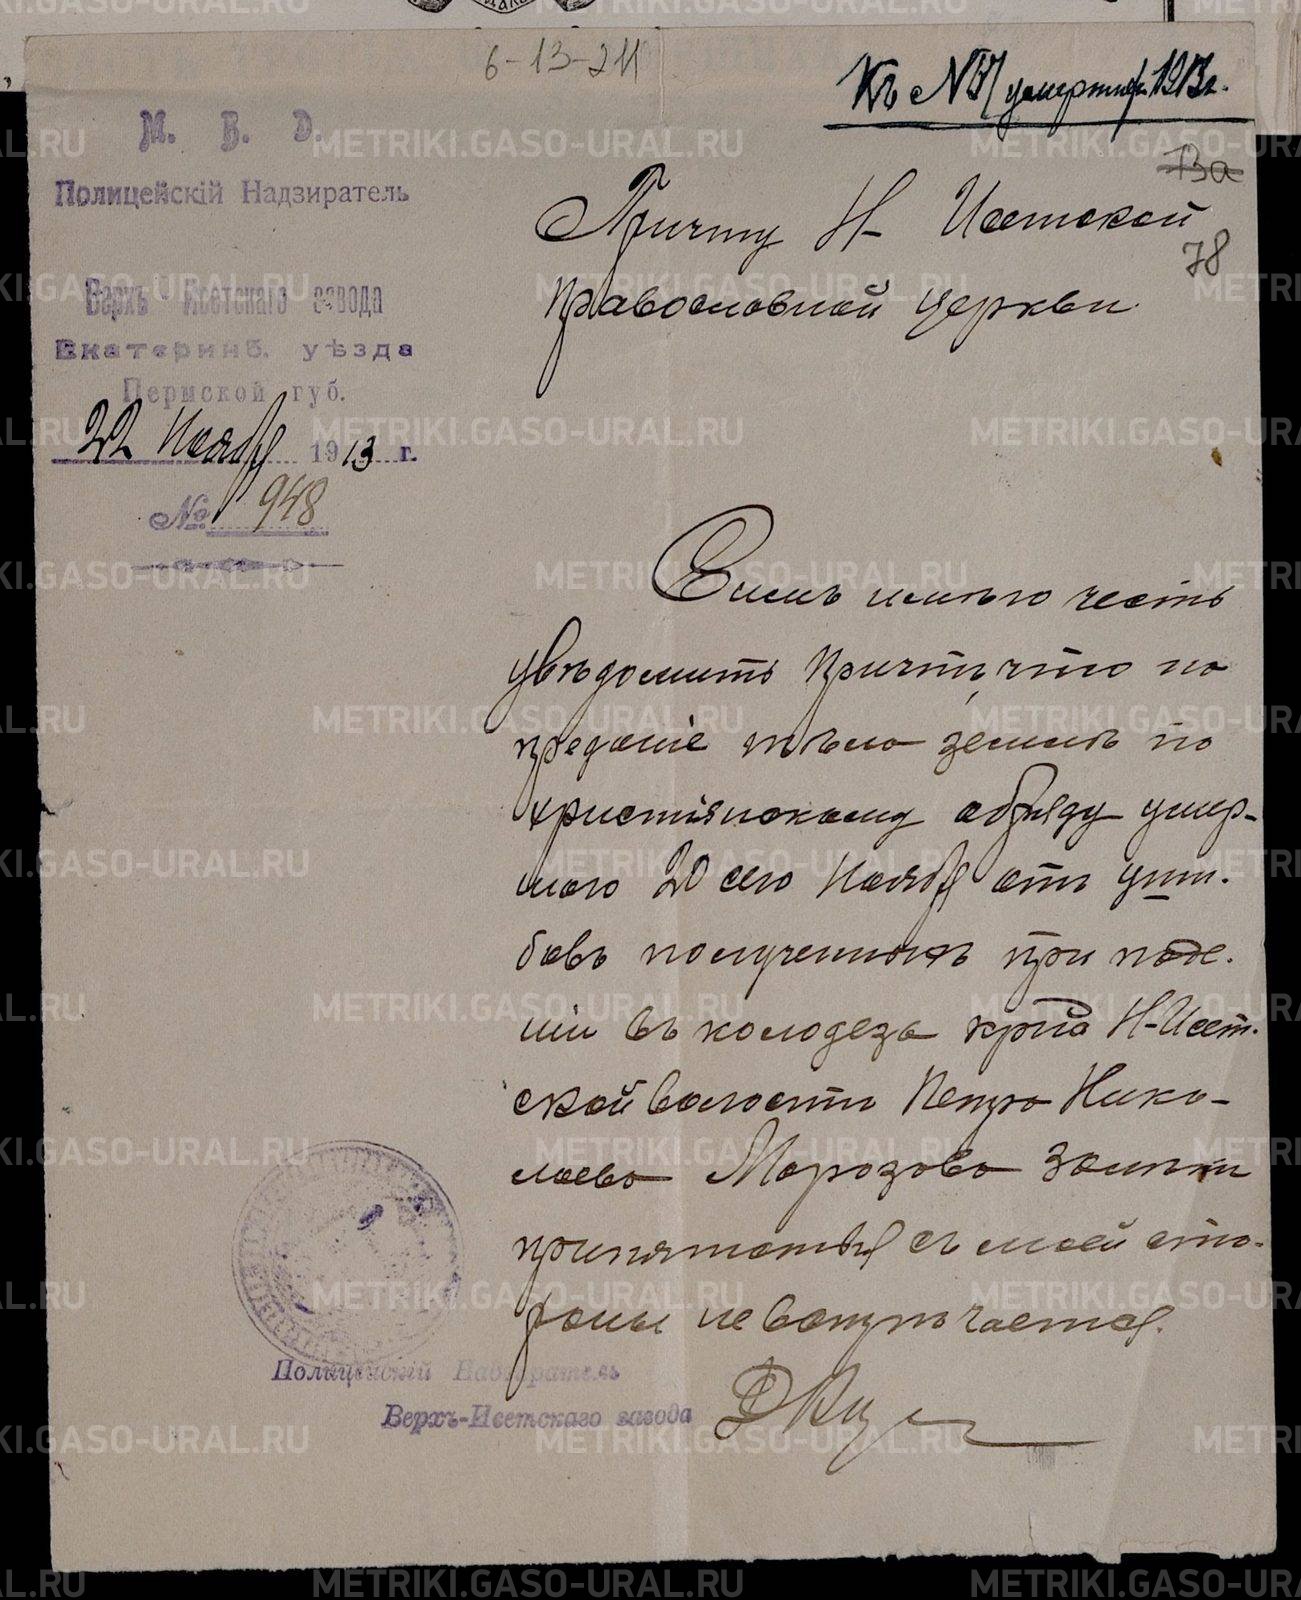 6-13-211
Къ № умершихъ 1913 г.
13а
78
М. В. Д.
Полицейскій Надзиратель
Верхъ-Исетскаго завода
Екатеринб. уѣзда
Пермской губ.
22 Ноября 1913 г.
№ 948
Причту Н-Исетской
Православной церкви
Симъ имѣю честь
увѣдомить причтъ, что на
преданіе тѣла землѣ по
христіянскому обряду умер-
шаго 20 сего Ноября отъ уши-
бовъ полученныхъ при паде-
ніи въ колодезь кр-на Н-Исет-
ской волости Петра Нико-
лаева Морозова
препятствій съ моей сто-
роны не встрѣчается.
Полицейскій Надзиратель
Верхъ-Исетскаго завода
METRIKI.GASO-URAL.RU